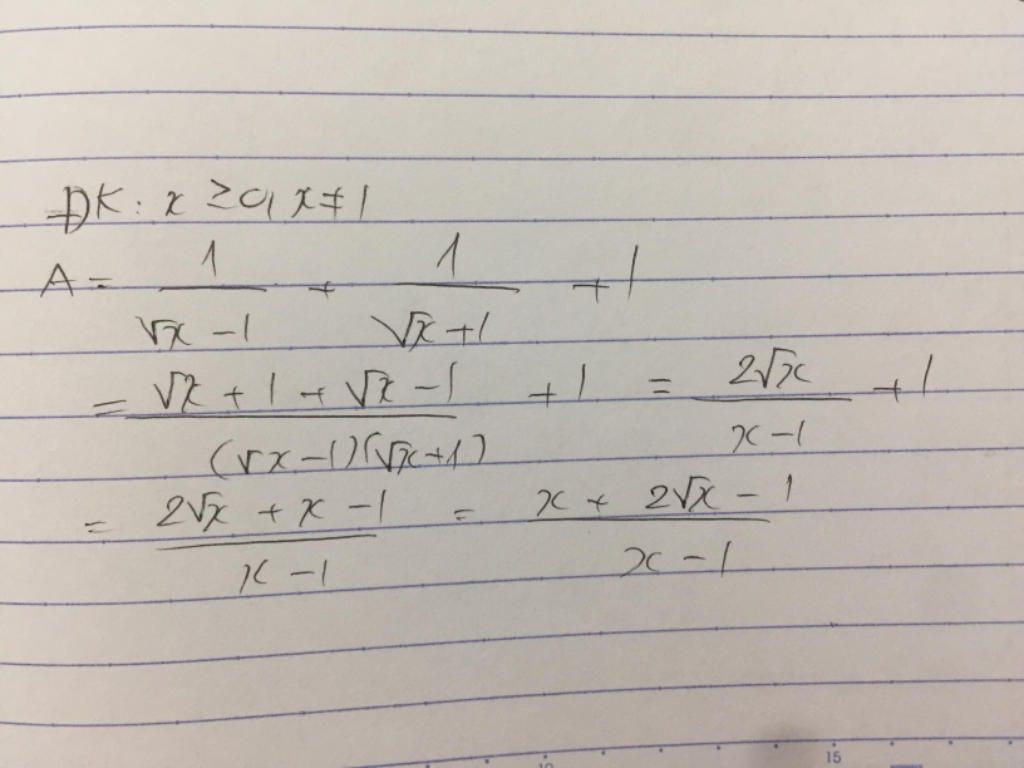 ĐK: x ≥ 0, x ≠ 1
A = 1/(√x - 1) + 1/(√x + 1) + 1
= (√x + 1 + √x - 1)/((√x - 1)(√x + 1)) + 1 = 2√x/(x - 1) + 1
= (2√x + x - 1)/(x - 1) = (x + 2√x - 1)/(x - 1)
10 15